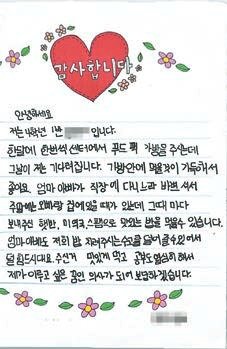 감사합니다
안녕하세요
저는 4학년 1반 입니다.
한달에 한번씩 센터에서 푸드 팩 가방을 주시는데
그날이 저는 기다려집니다. 가방안에 먹을것이 가득해서
좋아요. 엄마 아빠가 직장에 다니느라 바쁘 셔서
주말에는 오빠랑 집에 있을 때가 있는데 그때 마다
보내주신 햇반, 미역국, 스팸으로 맛있는 밥을 먹을수 있습니다.
엄마, 아빠도 저희 밥 차려주시는 수고를 덜어 줄수 있어서
덜 힘드시대요. 주신거 맛있게 먹고 공부도 열심히 해서
제가 이루고 싶은 꿈인 의사가 되어 보답하겠습니다.